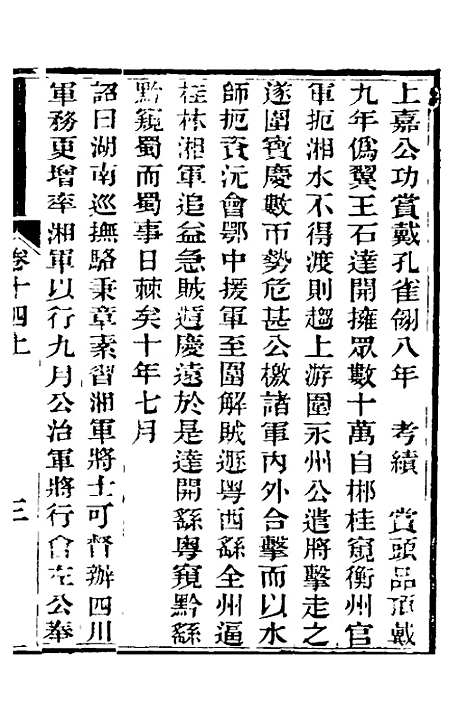 上嘉公功賞戴孔雀翎八年　考績　賞頭品頂戴
九年僞翼王石達開擁眾數十萬自郴桂窺衡州官
軍扼湘水不得渡則趨上游圍永州公遣將擊走之
遂圍寶慶數帀勢危甚公檄諸軍內外合擊而以水
師扼資沅會鄂中援軍至圍解賊遯粵西繇全州逼
桂林湘軍追益急賊遁慶遠於是達開繇粵窺黔繇
黔窺蜀而蜀事日棘矣十年七月
詔曰湖南巡撫駱秉章素習湘軍將士可督辦四川
軍務更增率湘軍以行九月公治軍將行會左公奉
卷十四上
三